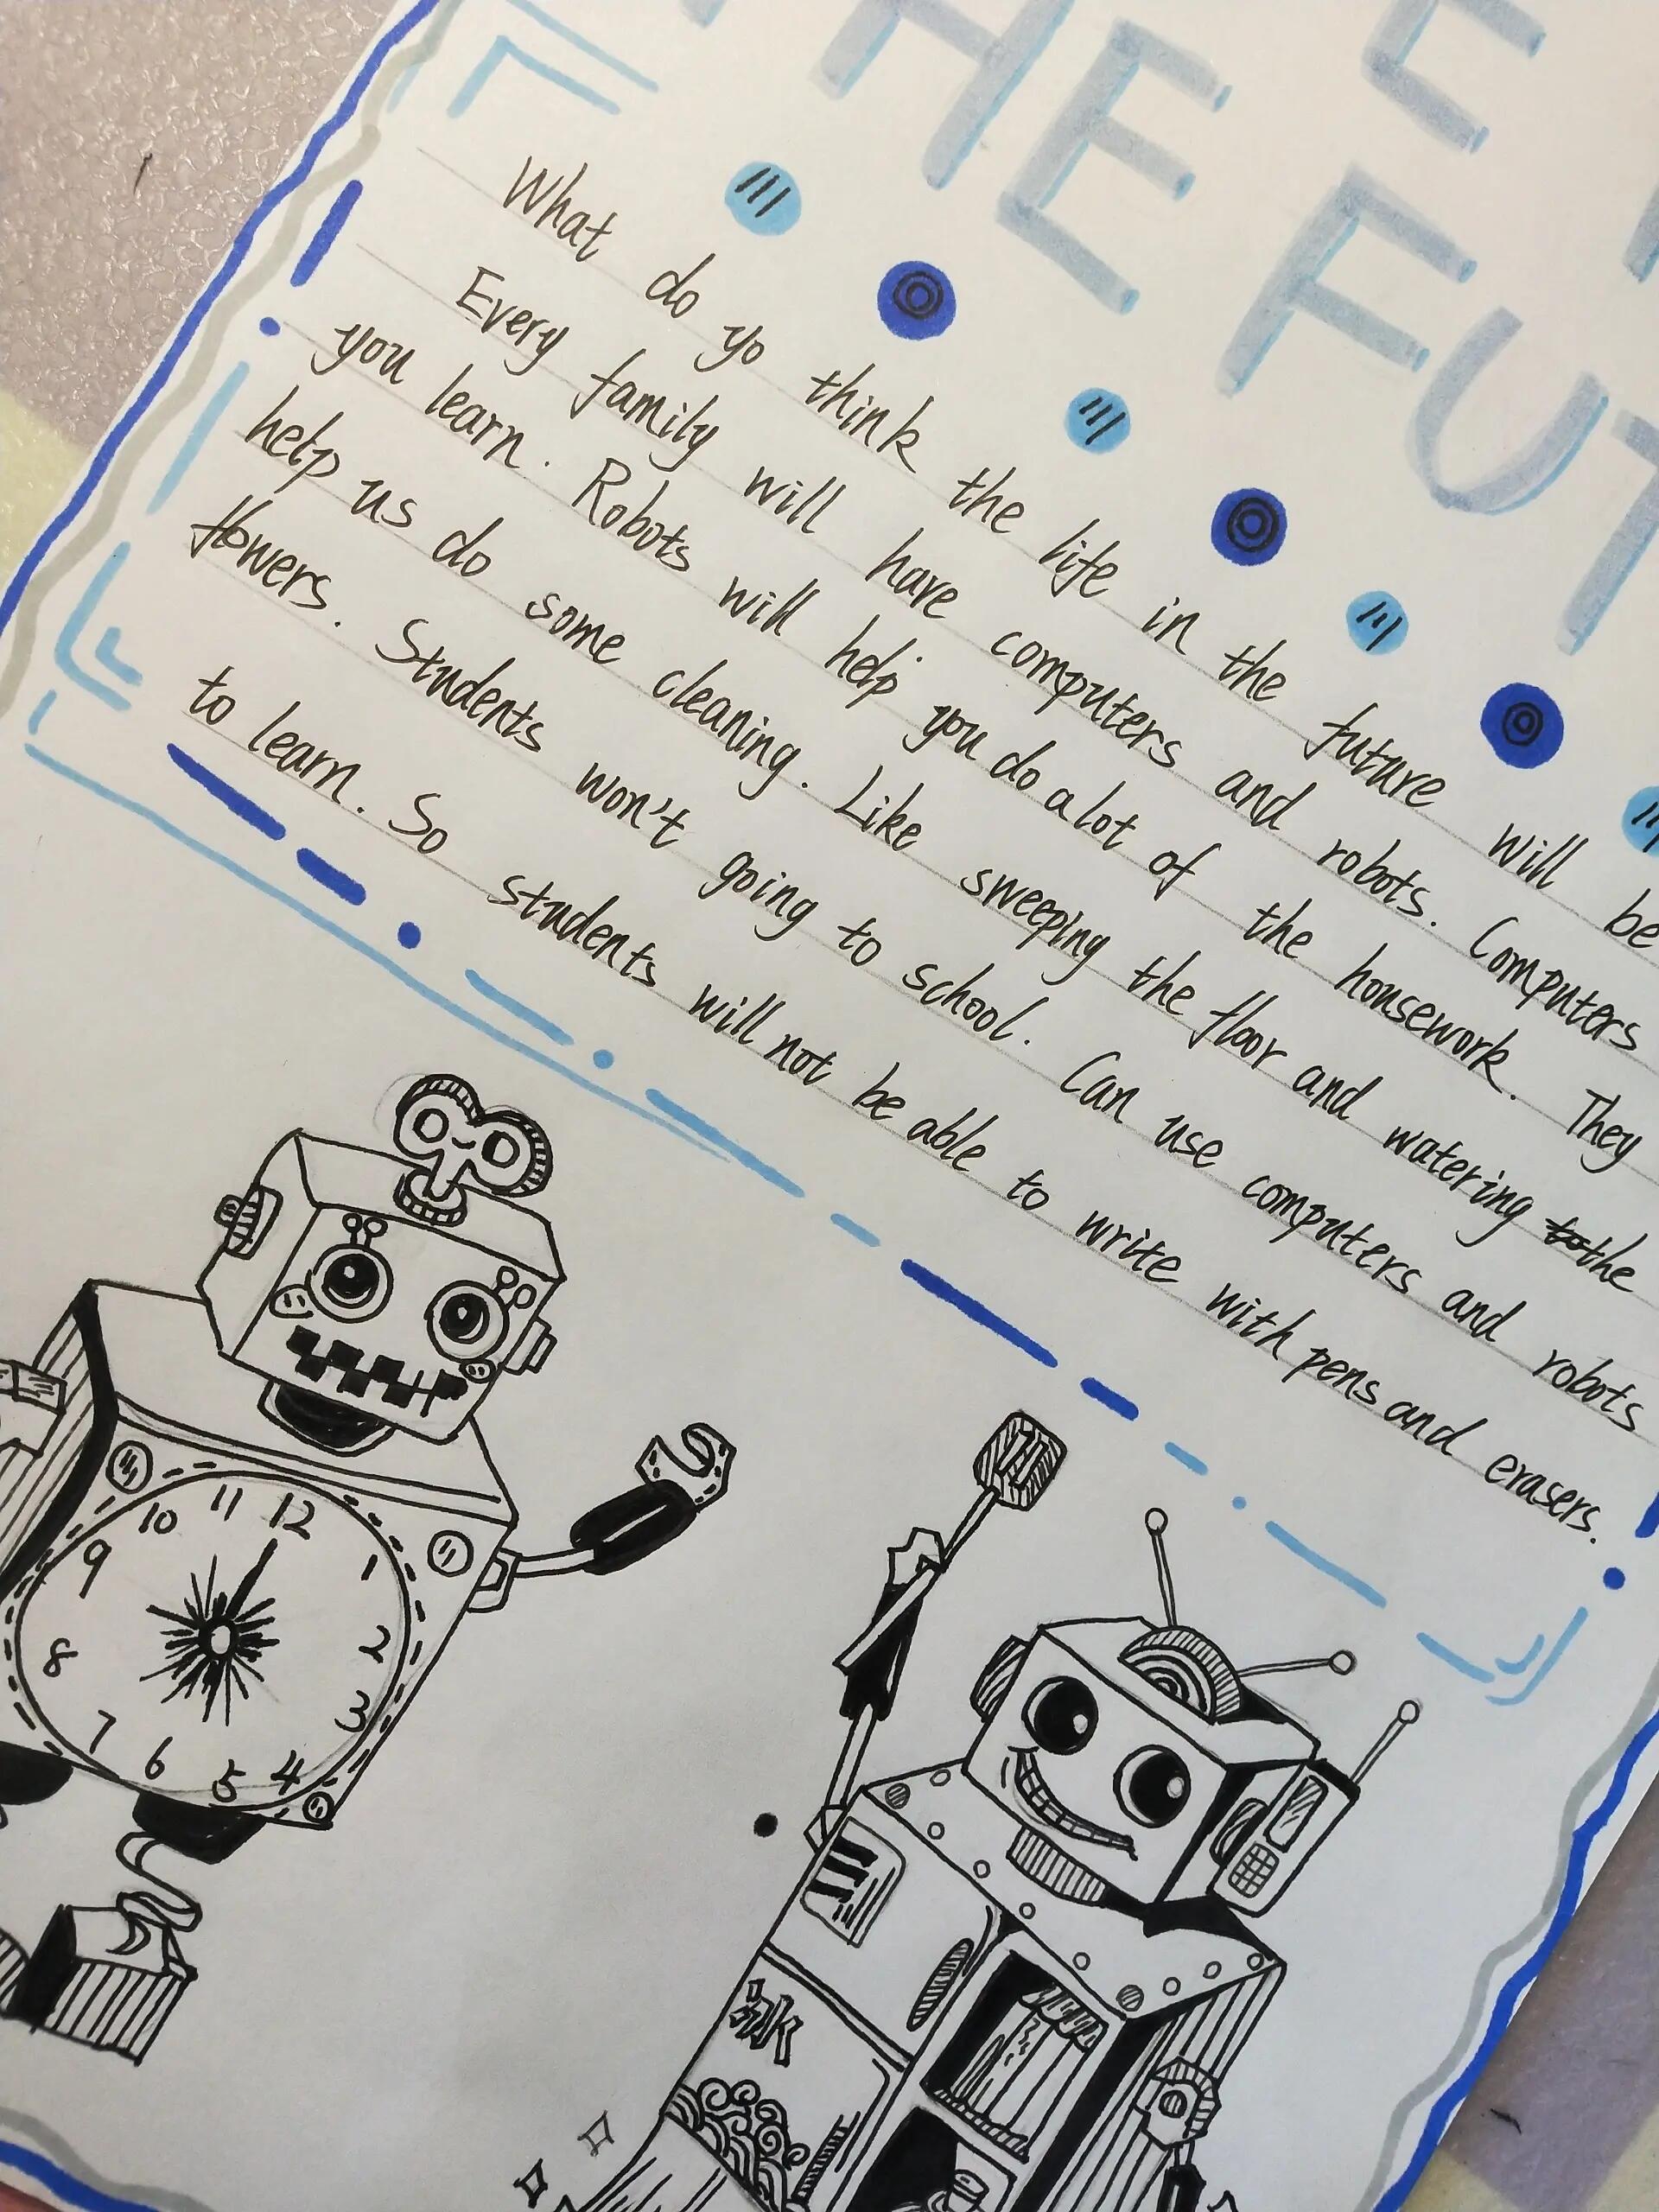 THE FUT
What do yo think the life in the future will be
Every family will have computers and robots. Computers
you learn. Robots will help you do a lot of the housework. They
help us do some cleaning. Like sweeping the floor and watering the
flowers. Students won't going to school. Can use computers and robots
to learn. So students will not be able to write with pens and erasers.
12 1 2 3 4 5 6 7 8 9 10 11
冰